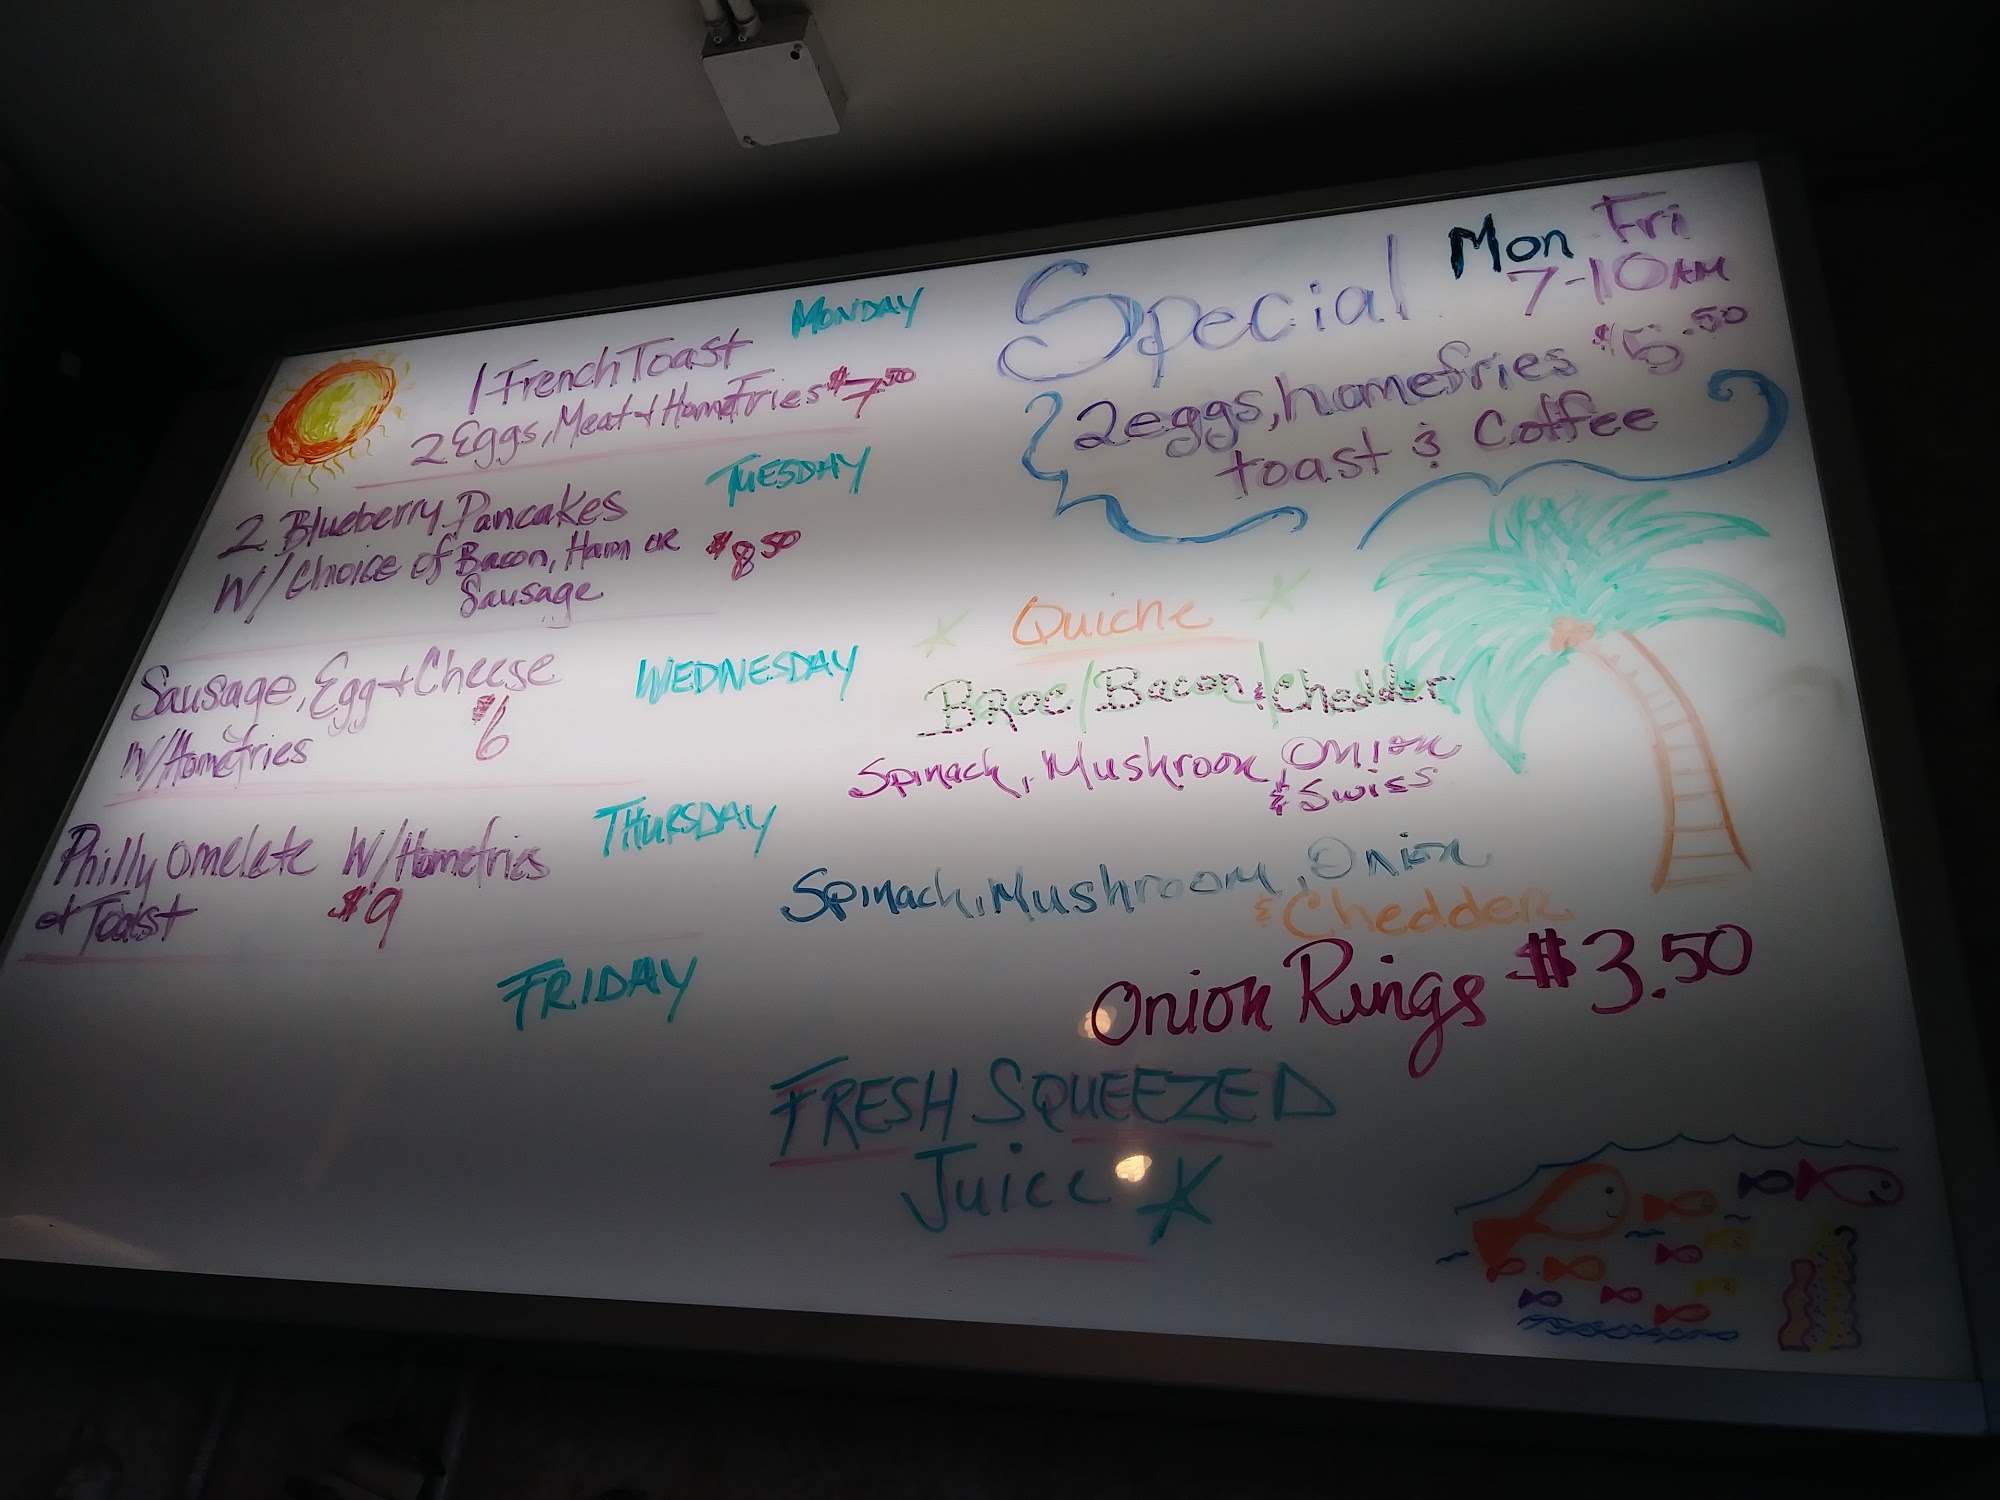 MONDAY
1 French Toast
2 Eggs, Meat + HomeFries $7.50
TUESDAY
2 Blueberry Pancakes
W/Choice of Bacon, Ham or
Sausage
$8.50
WEDNESDAY
Sausage, Egg + Cheese
W/Homefries
$6
THURSDAY
Philly omelete W/Homefries
& Toast
$9
FRIDAY
Special
Mon Fri
7-10AM
2eggs, homefries $5.50
toast & Coffee
Quiche
BROC/Bacon & Chedder
Spinach, Mushroom, Onion
& Swiss
Spinach, Mushroom, Onion
& Chedder
Onion Rings $3.50
FRESH SQUEEZED
Juice